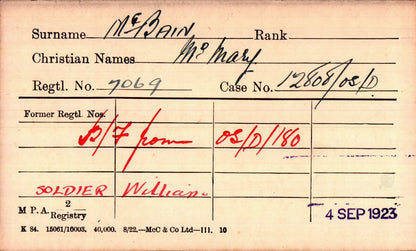 Surname McBain Rank
Christian Names Mrs Mary
Regtl. No. 7069 Case No. 12808/OS/D
Former Regtl. Nos.
B/F from OS/D/180
SOLDIER William
M P A. 2 Registry
4 SEP 1923
K 84. 15061/16003. 40,000. 8/22.—McC & Co Ltd—111. 10